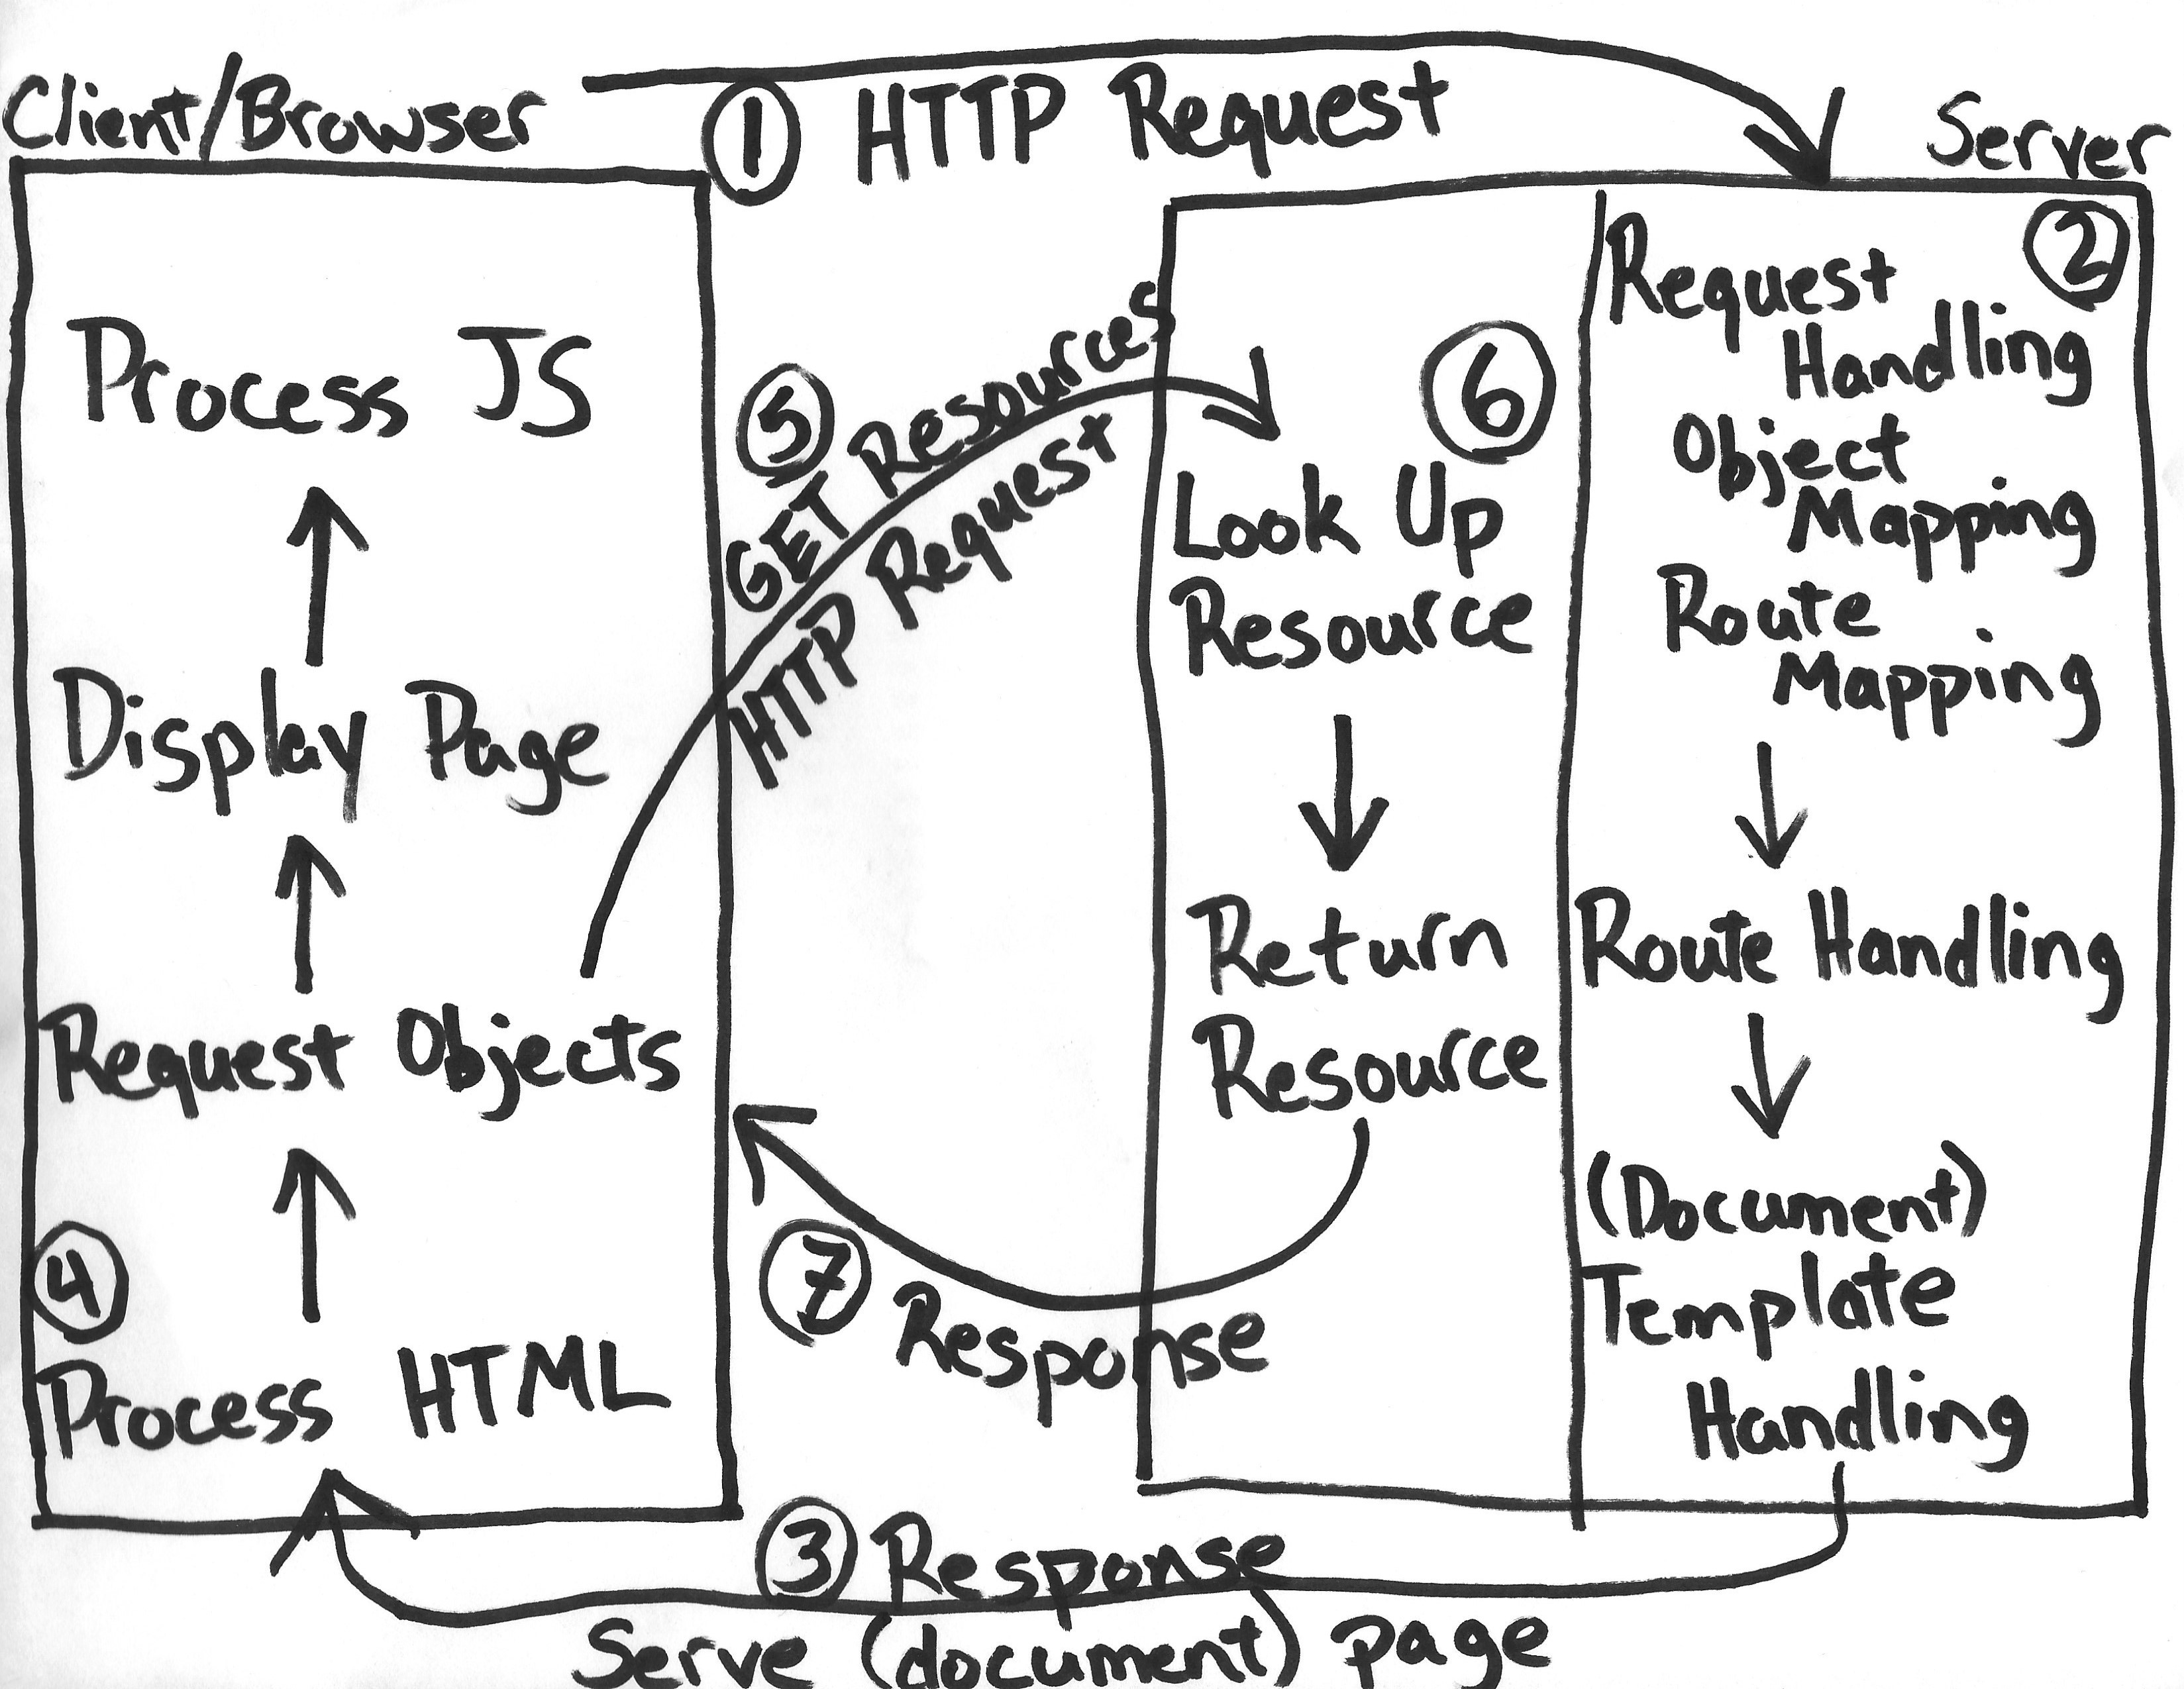 Client/Browser
① HTTP Request
Server
Process JS
Display Page
Request Objects
④
Process HTML
⑤
GET Resources
HTTP Request
⑥
Look Up
Resource
Return
Resource
⑦ Response
②
Request
Handling
Object
Mapping
Route
Mapping
Route Handling
(Document)
Template
Handling
③ Response
Serve (document) page